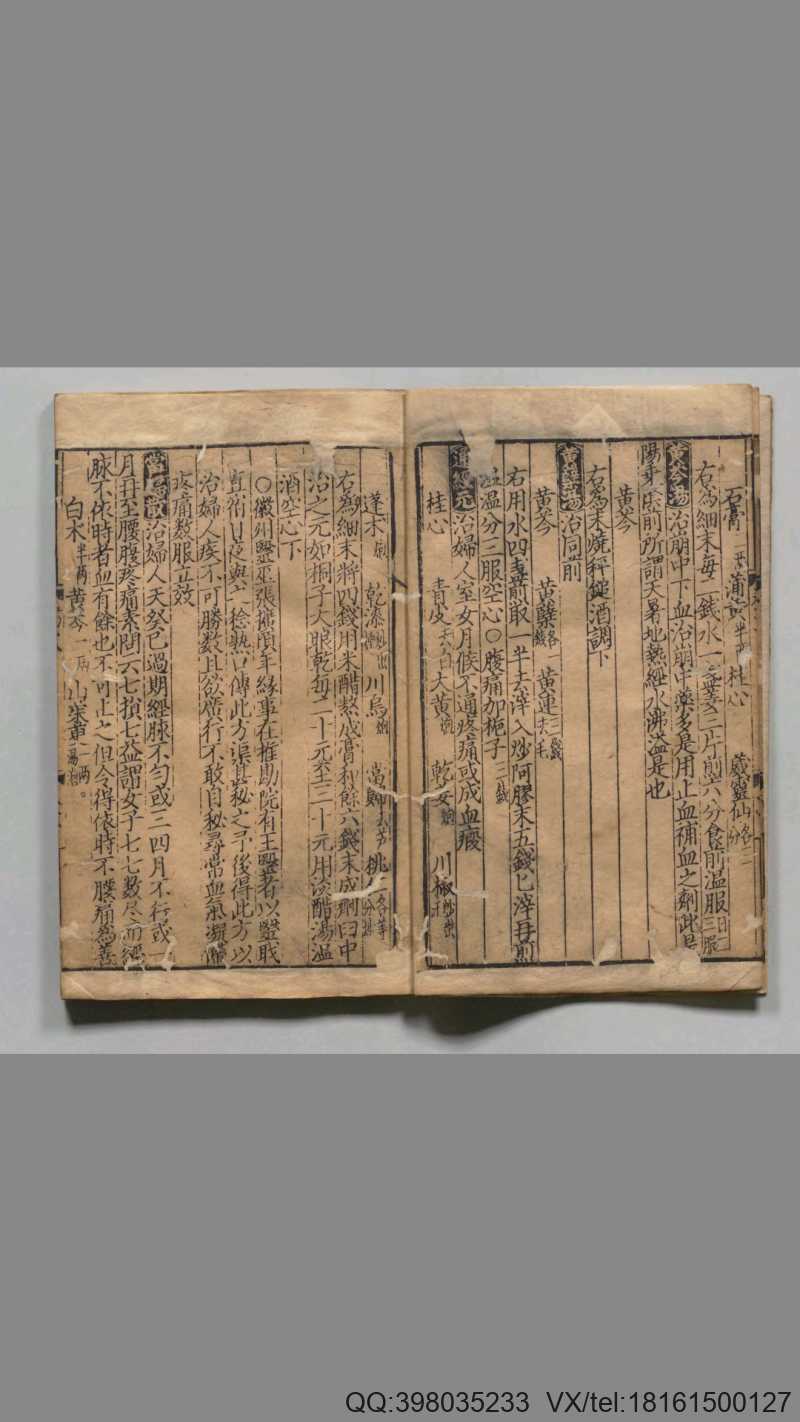 石膏 蒲黃半兩 桂心 葳靈仙各二分
右為細末每二錢水一盞姜三片煎六分食前温服日二三服
黄芩湯治崩中下血治崩中藥多是用止血補血之劑此是
陽乗陰前所謂天暑地熱經水沸溢是也
黄芩
右為末燒秤錘酒調下
黄蘗湯治同前
黄芩 黄蘗各一錢 黄連三錢去毛
右用水四盞煎取一半去滓入炒阿膠末五錢匕滓再煎
温分三服空心〇腹痛加梔子三錢
通經元治婦人室女月候不通疼痛或成血瘕
桂心 青皮去白 大黄炮 乾姜炮 川椒
蓬术 乾漆 川烏炮 當歸去芦 桃仁各等分
右為細末將四錢用米醋熬成膏和餘六錢末成劑臼中
治之元如桐子大眼乾每二十元至三十元用淡醋湯温
酒空心下
〇徽州醫巫張擴頃年緣事在推勘院有王醫者以醫職
直宿日夜與之稔熟口傳此方渠甚秘之予後得此方以
治婦人疾不可勝數且欲廣行不敢自秘尋常血氣瀕
疼痛數服立效
當歸散治婦人天癸已過期經脉不勻或三四月不行或一
月再至腰腹疼痛素問云七損七益謂女子七七數尽而經
脉不依時者血有餘也不可止之但令得依時不腰痛為善
白术半兩 黄芩一兩 山茱萸一兩
QQ:398035233 VX/tel:18161500127